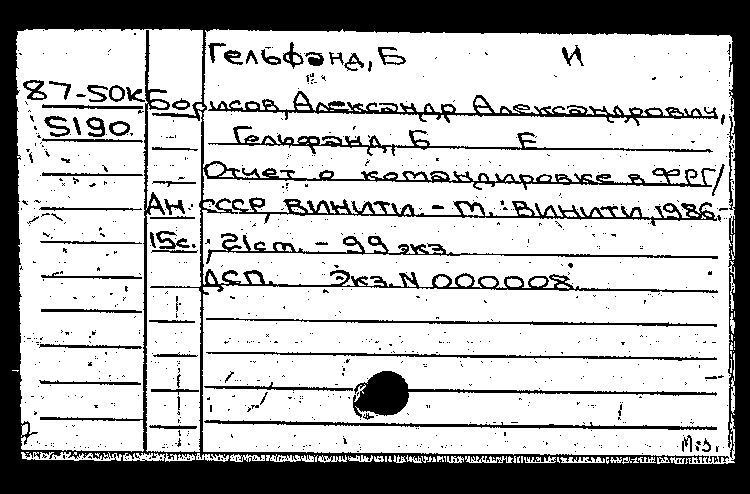 Гельфанд, Б И
87-50К Борисов, Александр Александрович,
5190 Гельфанд, Б Е
Отчет о командировке в ФРГ/
АН СССР, ВИНИТИ. - М. : ВИНИТИ, 1986.
15с. ; 21см. - 99 экз.
ДСП. Экз. N 000008.